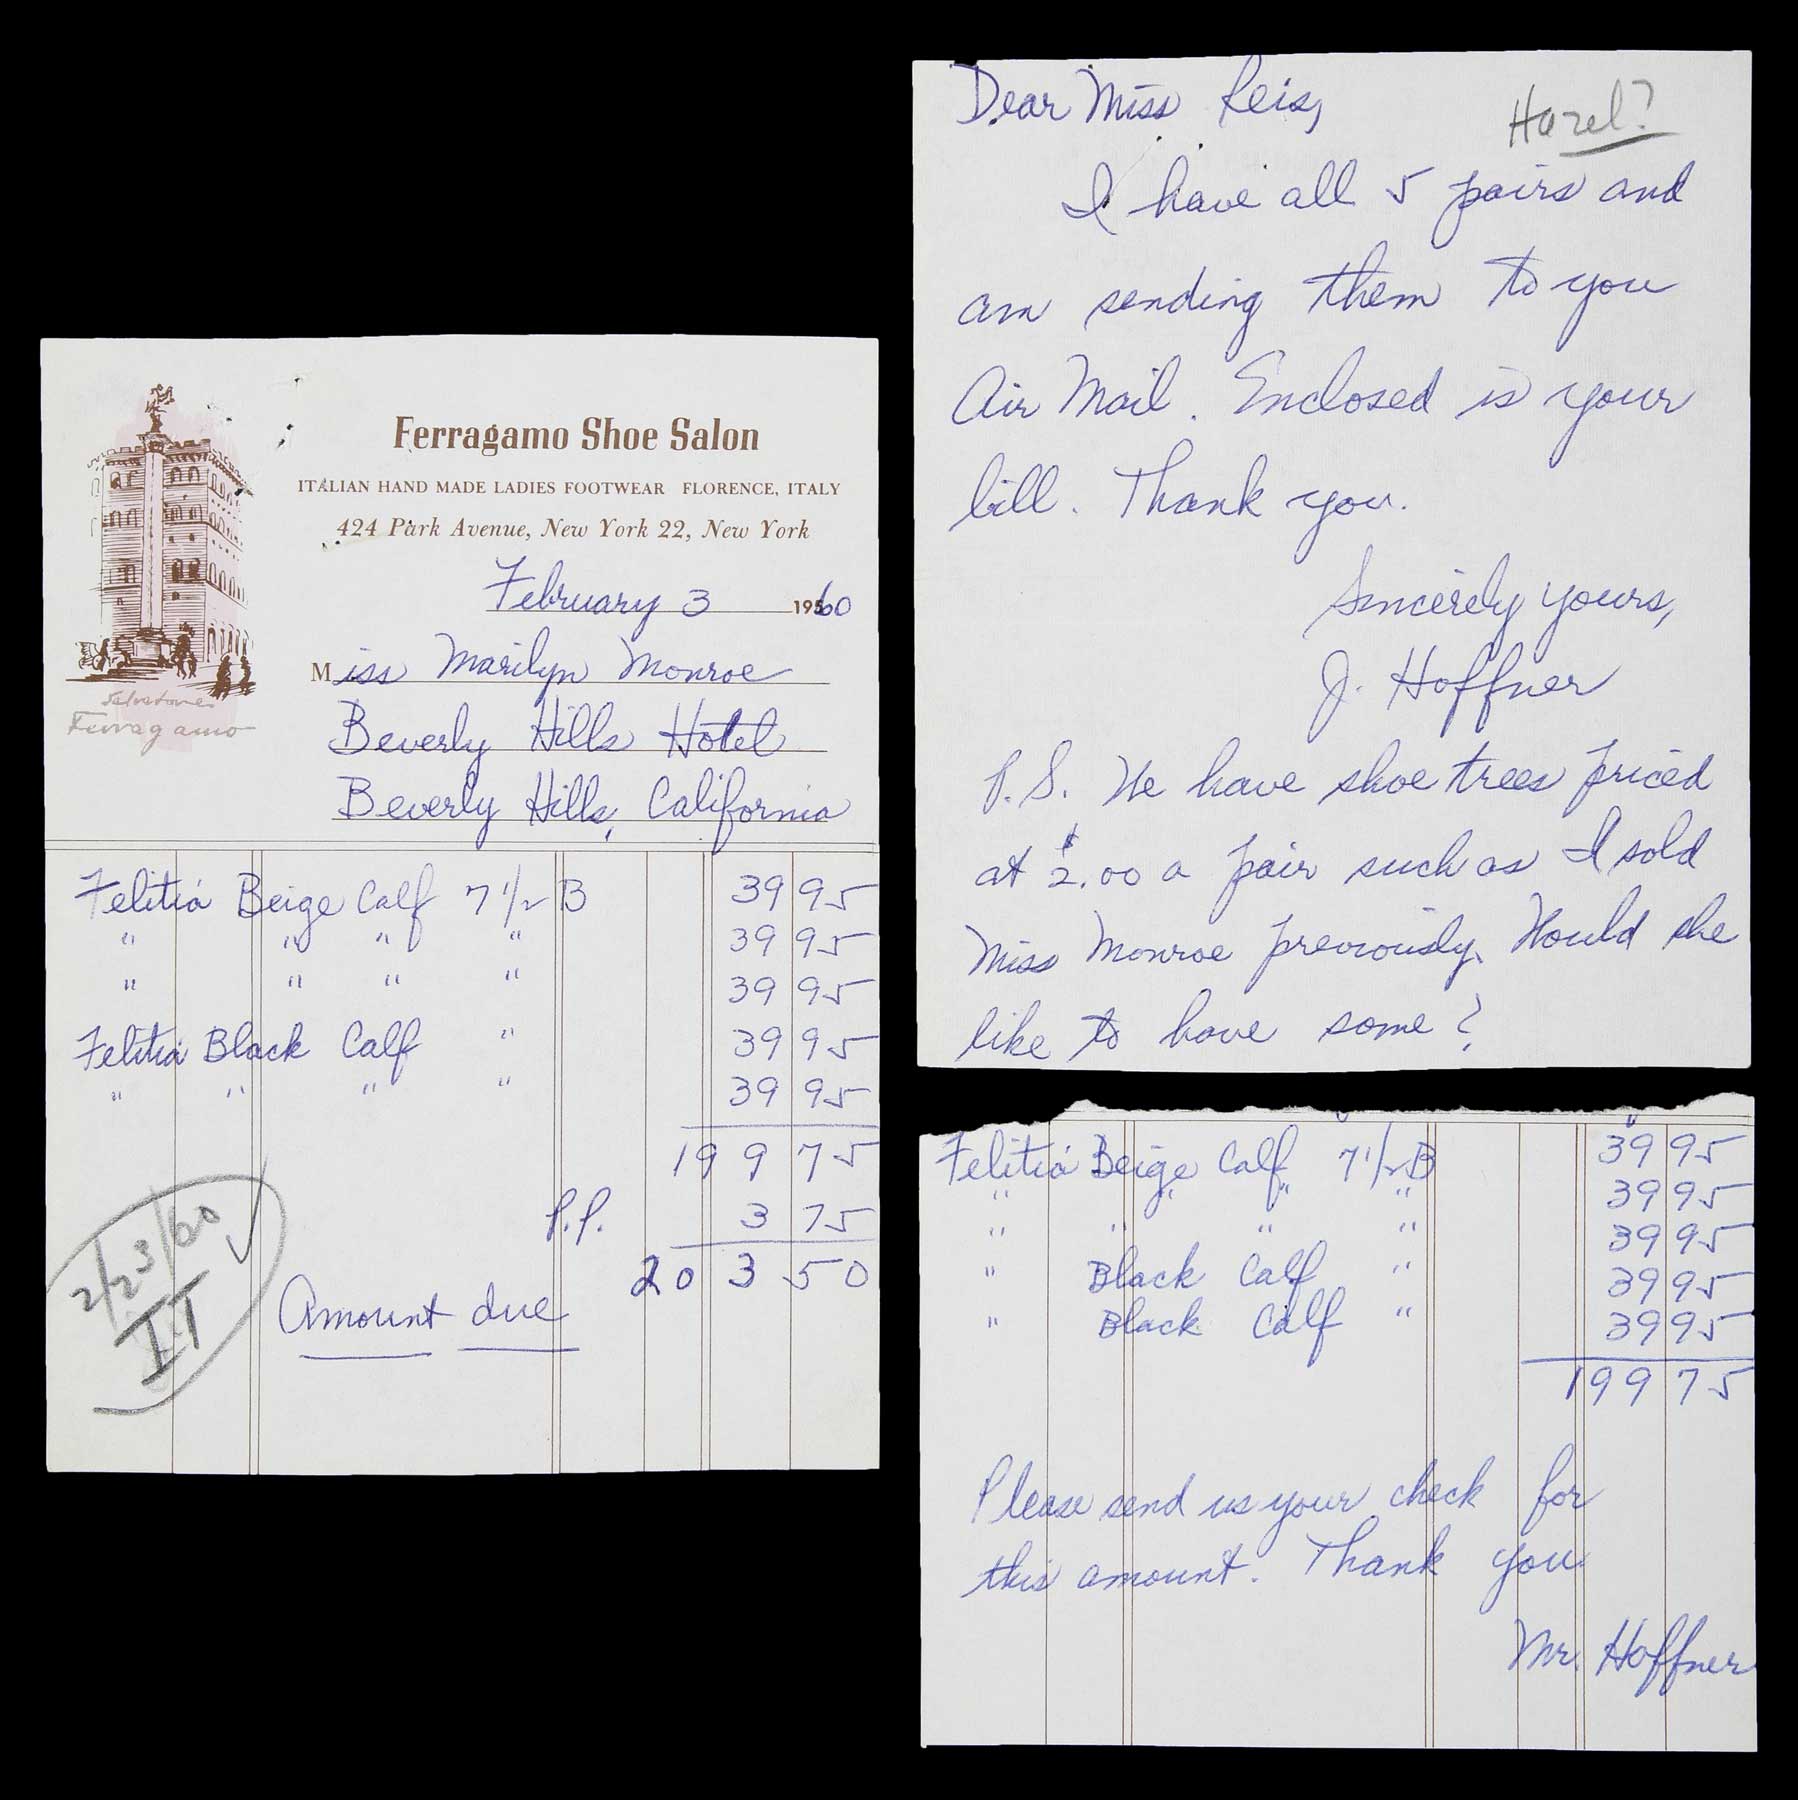 Ferragamo Shoe Salon
ITALIAN HAND MADE LADIES FOOTWEAR FLORENCE, ITALY
424 Park Avenue, New York 22, New York
February 3 1960
Miss Marilyn Monroe
Beverly Hills Hotel
Beverly Hills, California
Salvatore
Ferragamo
Felitia Beige Calf 7 1/2 B 39 95
" " " " 39 95
" " " " 39 95
Felitia Black Calf " 39 95
" " " " 39 95
199 75
P.P. 3 75
203 50
Amount due
2/23/60
IT
Dear Miss Reis,
Hazel?
I have all 5 pairs and
am sending them to you
Air Mail. Enclosed is your
bill. Thank you.
Sincerely yours,
J. Hoffner
P.S. We have shoe trees priced
at $2.00 a pair such as I sold
Miss Monroe previously. Would she
like to have some?
Felitia Beige Calf 7 1/2 B 39 95
" " " " 39 95
" " " " 39 95
" Black Calf " 39 95
" Black Calf " 39 95
199 75
Please send us your check for
this amount. Thank you
Mr. Hoffner